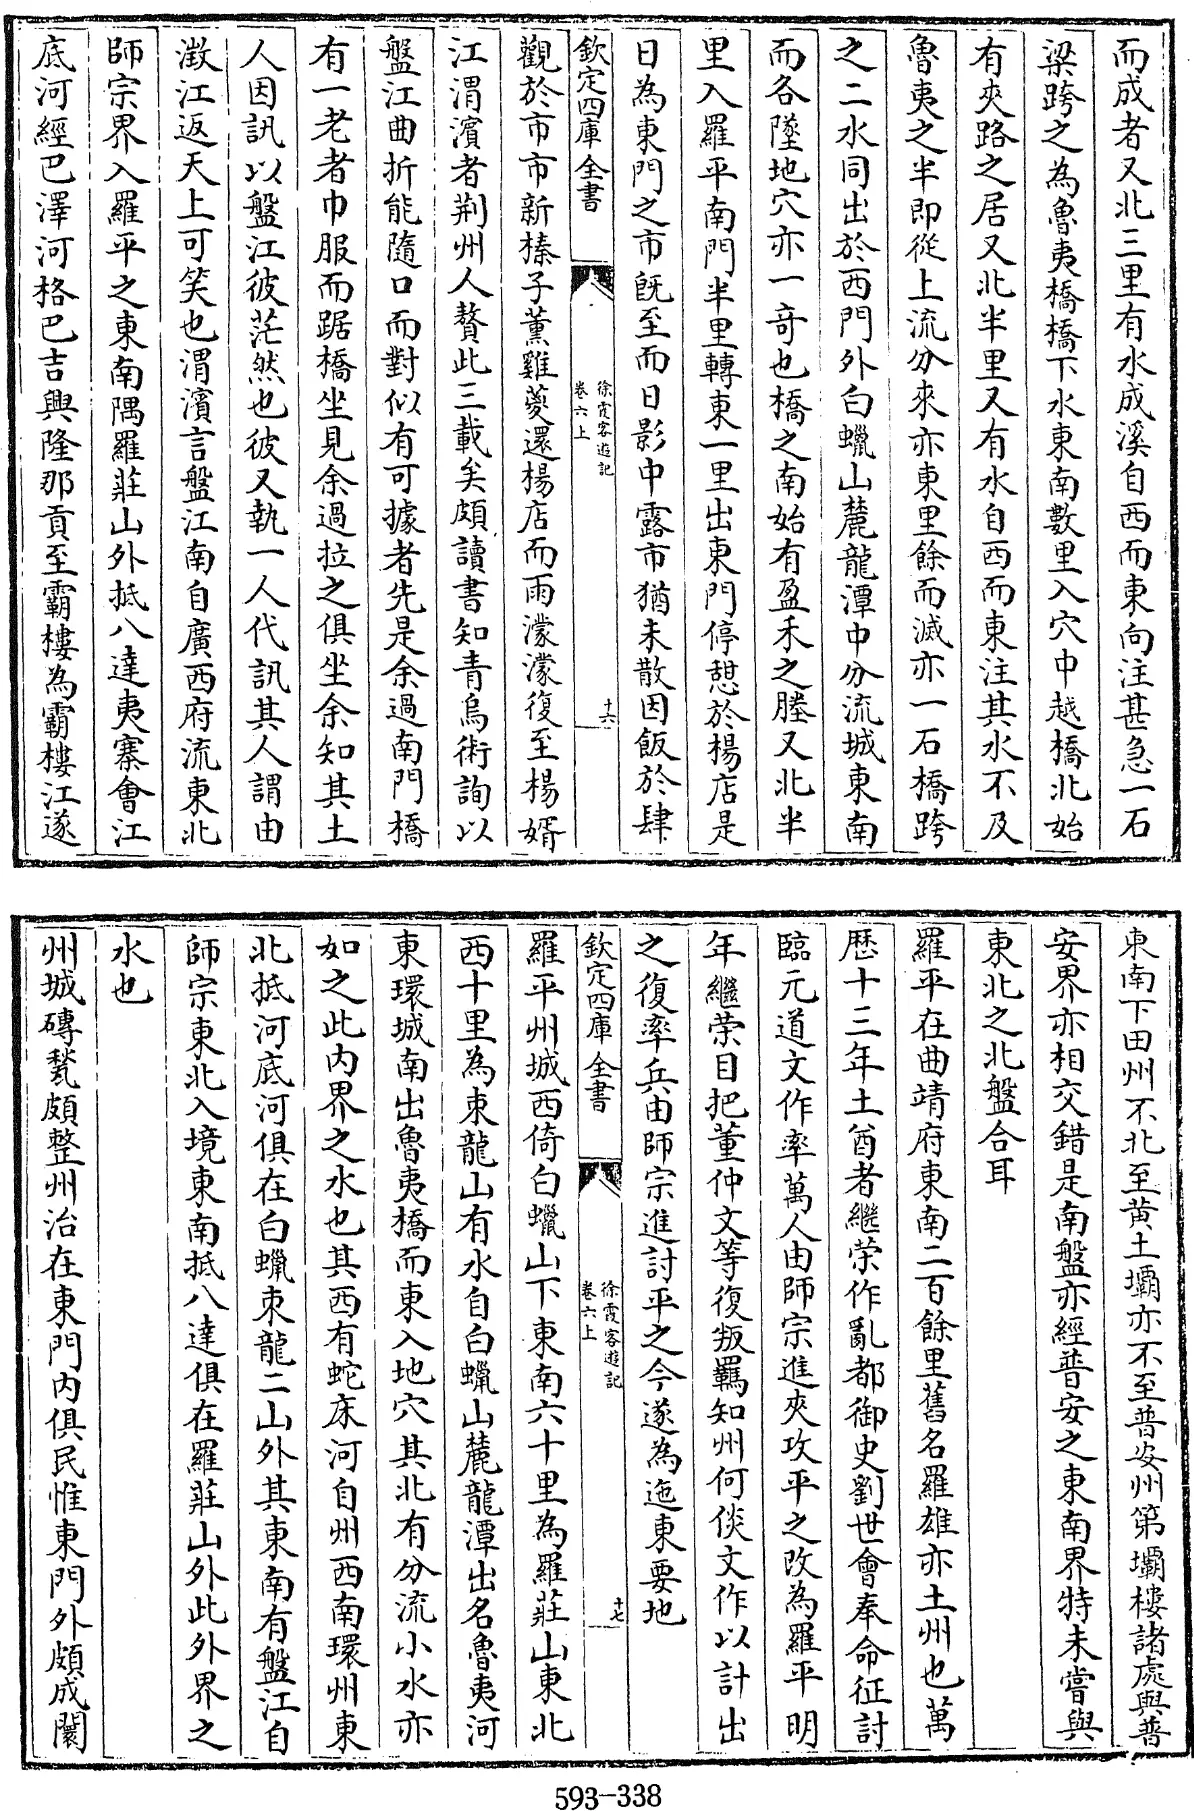 而成者又北三里有水成溪自西而東向注甚急一石
梁跨之為魯夷橋橋下水東南數里入穴中越橋北始
有夾路之居又北半里又有水自西而東注其水不及
魯夷之半即從上流分來亦東里餘而滅亦一石橋跨
之二水同出於西門外白蠟山麓龍潭中分流城東南
而各墜地穴亦一奇也橋之南始有盈禾之塍又北半
里入羅平南門半里轉東一里出東門停憩於楊店是
日為東門之市既至而日影中露市猶未散因飯於肆
欽定四庫全書
徐霞客遊記
卷六上
十六
觀於市市新榛子薰雞葼還楊店而雨濛濛復至楊婿
江渭濱者荆州人贅此三載矣頗讀書知青烏術詢以
盤江曲折能隨口而對似有可據者先是余過南門橋
有一老者巾服而踞橋坐見余過拉之俱坐余知其土
人因訊以盤江彼茫然也彼又執一人代訊其人謂由
澂江返天上可笑也渭濱言盤江南自廣西府流東北
師宗界入羅平之東南隅羅莊山外抵八達夷寨會江
底河經巴澤河格巴吉興隆那貢至霸樓為霸樓江遂
東南下田州不北至黃土壩亦不至普安州第壩樓諸處與普
安界亦相交錯是南盤亦經普安之東南界特未嘗與
東北之北盤合耳
羅平在曲靖府東南二百餘里舊名羅雄亦土州也萬
歷十三年土酋者繼榮作亂都御史劉世會奉命征討
臨元道文作率萬人由師宗進夾攻平之改為羅平明
年繼榮目把董仲文等復叛羈知州何倓文作以計出
之復率兵由師宗進討平之今遂為迤東要地
欽定四庫全書
徐霞客遊記
卷六上
十七
羅平州城西倚白蠟山下東南六十里為羅莊山東北
西十里為束龍山有水自白蠟山麓龍潭出名魯夷河
東環城南出魯夷橋而東入地穴其北有分流小水亦
如之此内界之水也其西有蛇床河自州西南環州東
北抵河底河俱在白蠟束龍二山外其東南有盤江自
師宗東北入境東南抵八達俱在羅莊山外此外界之
水也
州城磚甃頗整州治在東門内俱民惟東門外頗成闤
593-338